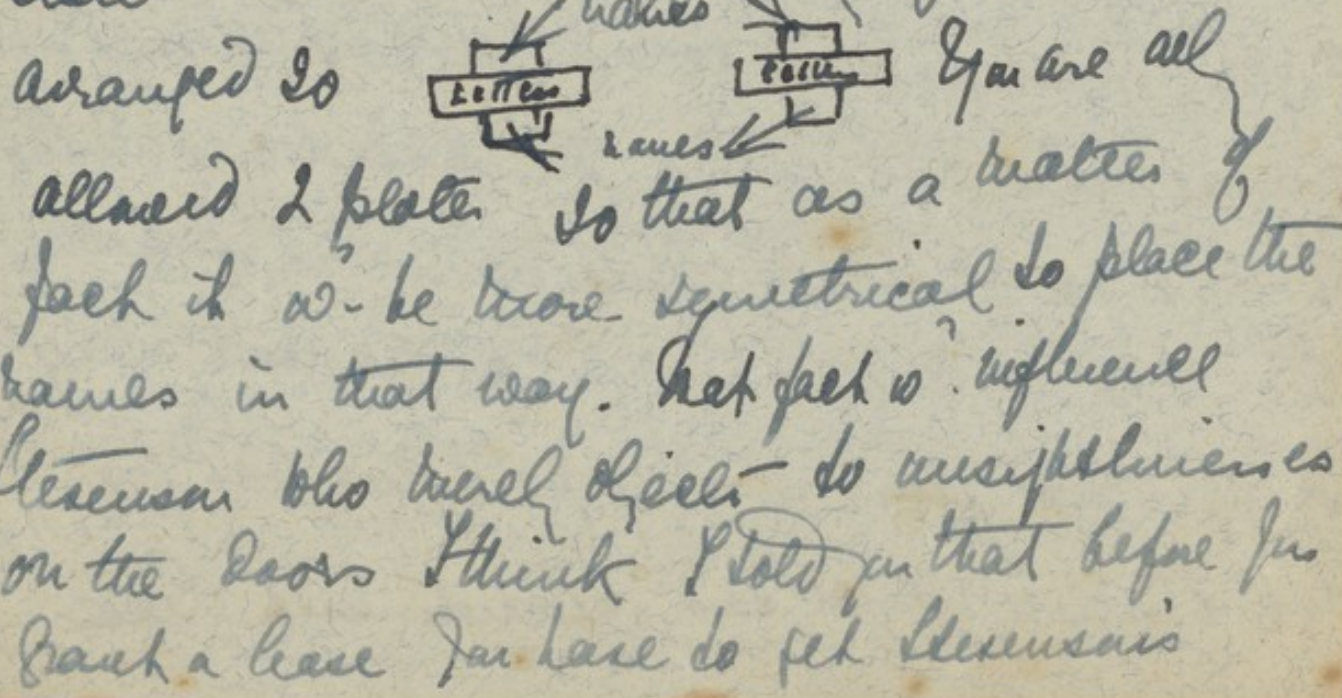 names
arranged so Letters Letters You are all
names
allowed 2 plates so that as a matter of
fact it wd. be more symetrical to place the
names in that way. That fact wd. influence
Stevenson who merely objects to unsightlinesses
on the doors I think I told you that before you
grant a lease you have to get Stevenson's